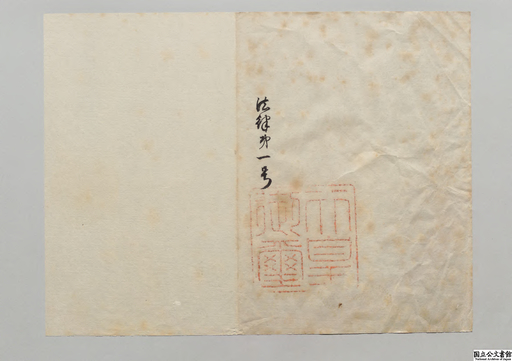 法律第一号
天皇
御璽
国立公文書館
National Archives of Japan